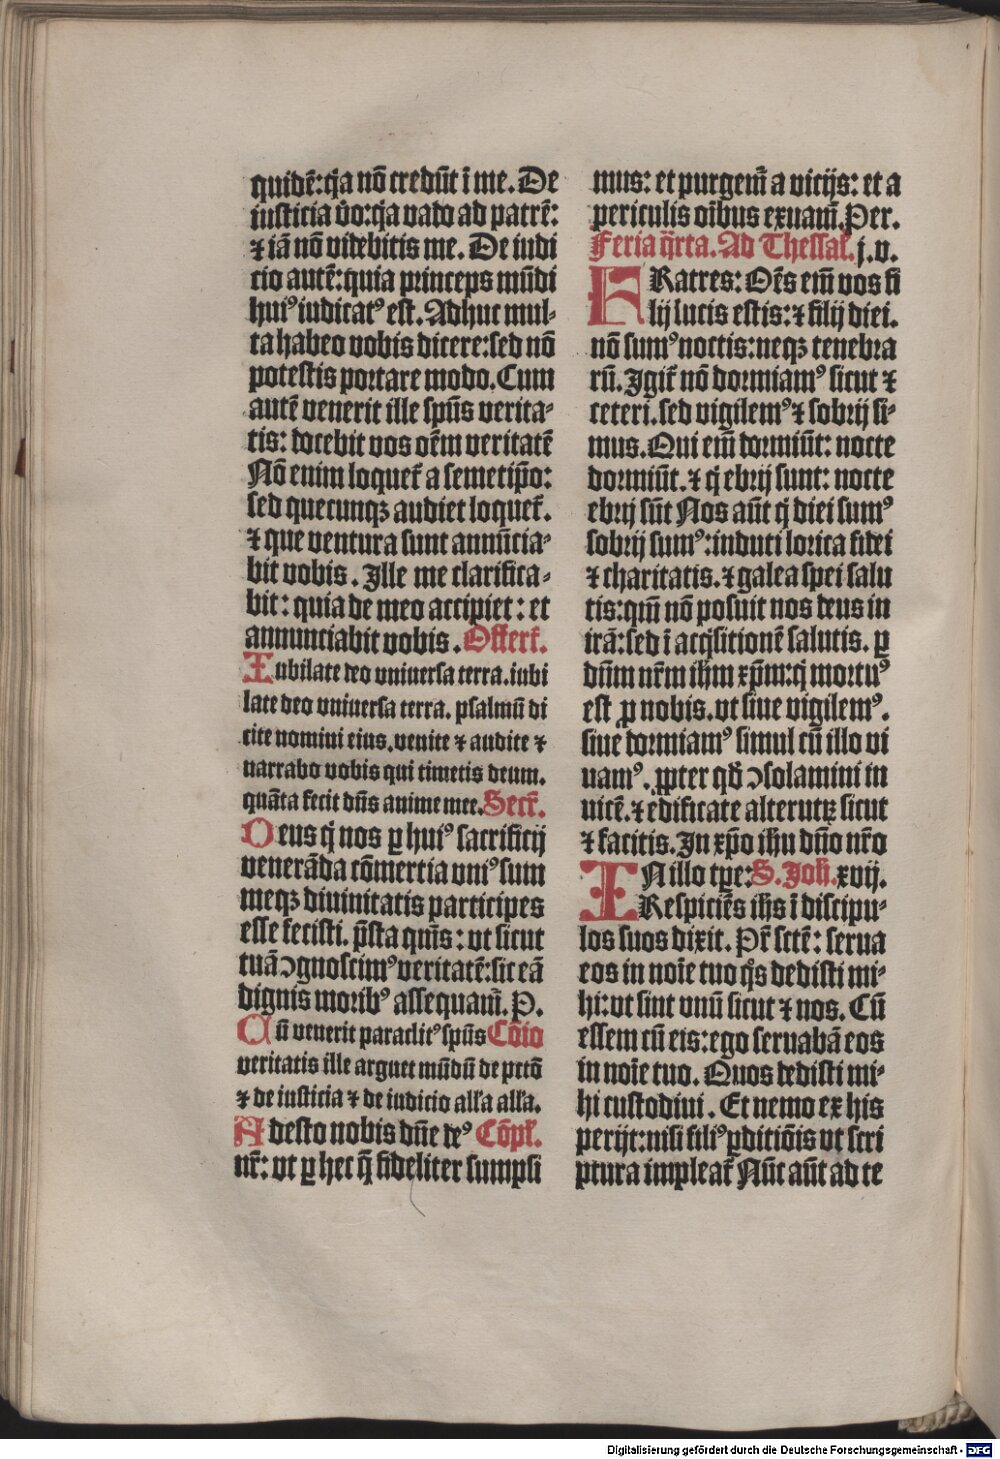 quidē: q̇a nō credūt ī me. De
iusticia v̄o: q̇a vado ad patrē:
⁊ iā nō videbitis me. De iudi
cio autē: quia princeps mūdi
huiꝰ iudicatꝰ est. Adhuc mul-
ta habeo vobis dicere: sed nō
potestis portare modo. Cum
autē venerit ille spūs verita-
tis: docebit vos oēm veritatē
Nō enim loquet̄ a semetip̄o:
sed quecunqꝫ audiet loquet̄.
⁊ que ventura sunt annūcia-
bit vobis. Ille me clarifica-
bit: quia de meo accipiet: et
annunciabit vobis. Offert̄.
Iubilate deo vniuersa terra. iubi
late deo vniuersa terra. psalmū di
cite nomini eius. venite ⁊ audite ⁊
narrabo vobis qui timetis deum.
quāta fecit dn̄s anime mee. Secr̄.
Deus q̇ nos ꝑ huiꝰ sacrificij
venerāda cōmertia vniꝰ sum
meqꝫ diuinitatis participes
esse fecisti. p̄sta qm̄s: vt sicut
tuā ꝯgnoscimꝰ veritatē: sic eā
dignis moribꝰ assequam̄. P.
Cū venerit paraclitꝰ spūs Cōio
veritatis ille arguet mūdū de pctō
⁊ de iusticia ⁊ de iudicio all'a all'a.
Adesto nobis dn̄e deꝰ Cōpl̄.
nr̄: vt ꝑ hec q̄ fideliter sumpsi
mus: et purgem̄ a vicijs: et a
periculis oībus exuam̄. Per.
Feria q̇rta. Ad Thessal̄. j. v.
FRatres: Oēs em̄ vos fi
lij lucis estis: ⁊ filij diei.
nō sumꝰ noctis: neqꝫ tenebra
rū. Igit̄ nō dormiamꝰ sicut ⁊
ceteri. sed vigilemꝰ ⁊ sobrij si-
mus. Qui em̄ dormiūt: nocte
dormiūt. ⁊ q̇ ebrij sunt: nocte
ebrij sūt Nos aūt q̇ diei sumꝰ
sobrij sumꝰ: induti lorica fidei
⁊ charitatis. ⁊ galea spei salu
tis: qm̄ nō posuit nos deus in
irā: sed ī acq̇sitionē salutis. ꝑ
dn̄m nr̄m ih̄m xp̄m: q̇ mortuꝰ
est ꝓ nobis. vt siue vigilemꝰ.
siue dormiamꝰ simul cū illo vi
uamꝰ. ꝓpter qd̄ ꝯsolamini in
uicē. ⁊ edificate alterutꝝ sicut
⁊ facitis. In xp̄o ih̄u dn̄o nr̄o
IN illo tp̄e: S. Joh̄. xvij.
Respiciēs ih̄s ī discipu-
los suos dixit. Pr̄ sctē: serua
eos in noīe tuo q̇s dedisti mi-
hi: vt sint vnū sicut ⁊ nos. Cū
essem cū eis: ego seruabā eos
in noīe tuo. Quos dedisti mi-
hi custodiui. Et nemo ex his
perijt: nisi filiꝰ ꝑditiōis vt scri
ptura impleat̄ Nūt aūt ad te
Digitalisierung gefördert durch die Deutsche Forschungsgemeinschaft - DFG